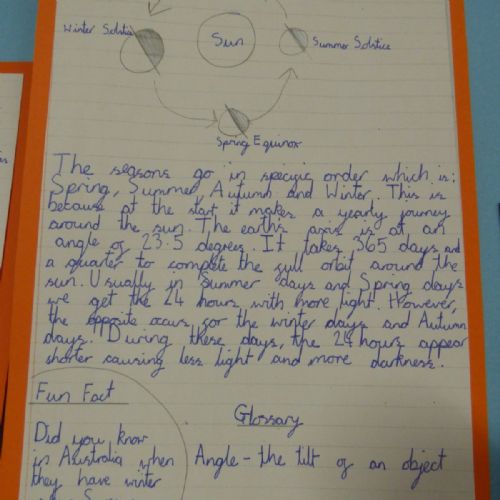 Winter Solstice
Sun
Summer Solstice
Spring Equinox
The seasons go in specific order which is:
Spring, Summer, Autumn and Winter. This is
because at the start it makes a yearly journey
around the sun. The earths axis is at an
angle of 23.5 degrees. It takes 365 days and
a quarter to complete the full orbit around the
sun. Usually in Summer days and Spring days
we get the 24 hours with more light. However,
the opposite occurs for the winter days and Autumn
days. During these days, the 24 hours appear
shorter causing less light and more darkness.
Fun Fact
Did you know
in Australia when
they have winter
Glossary
Angle - the tilt of an object